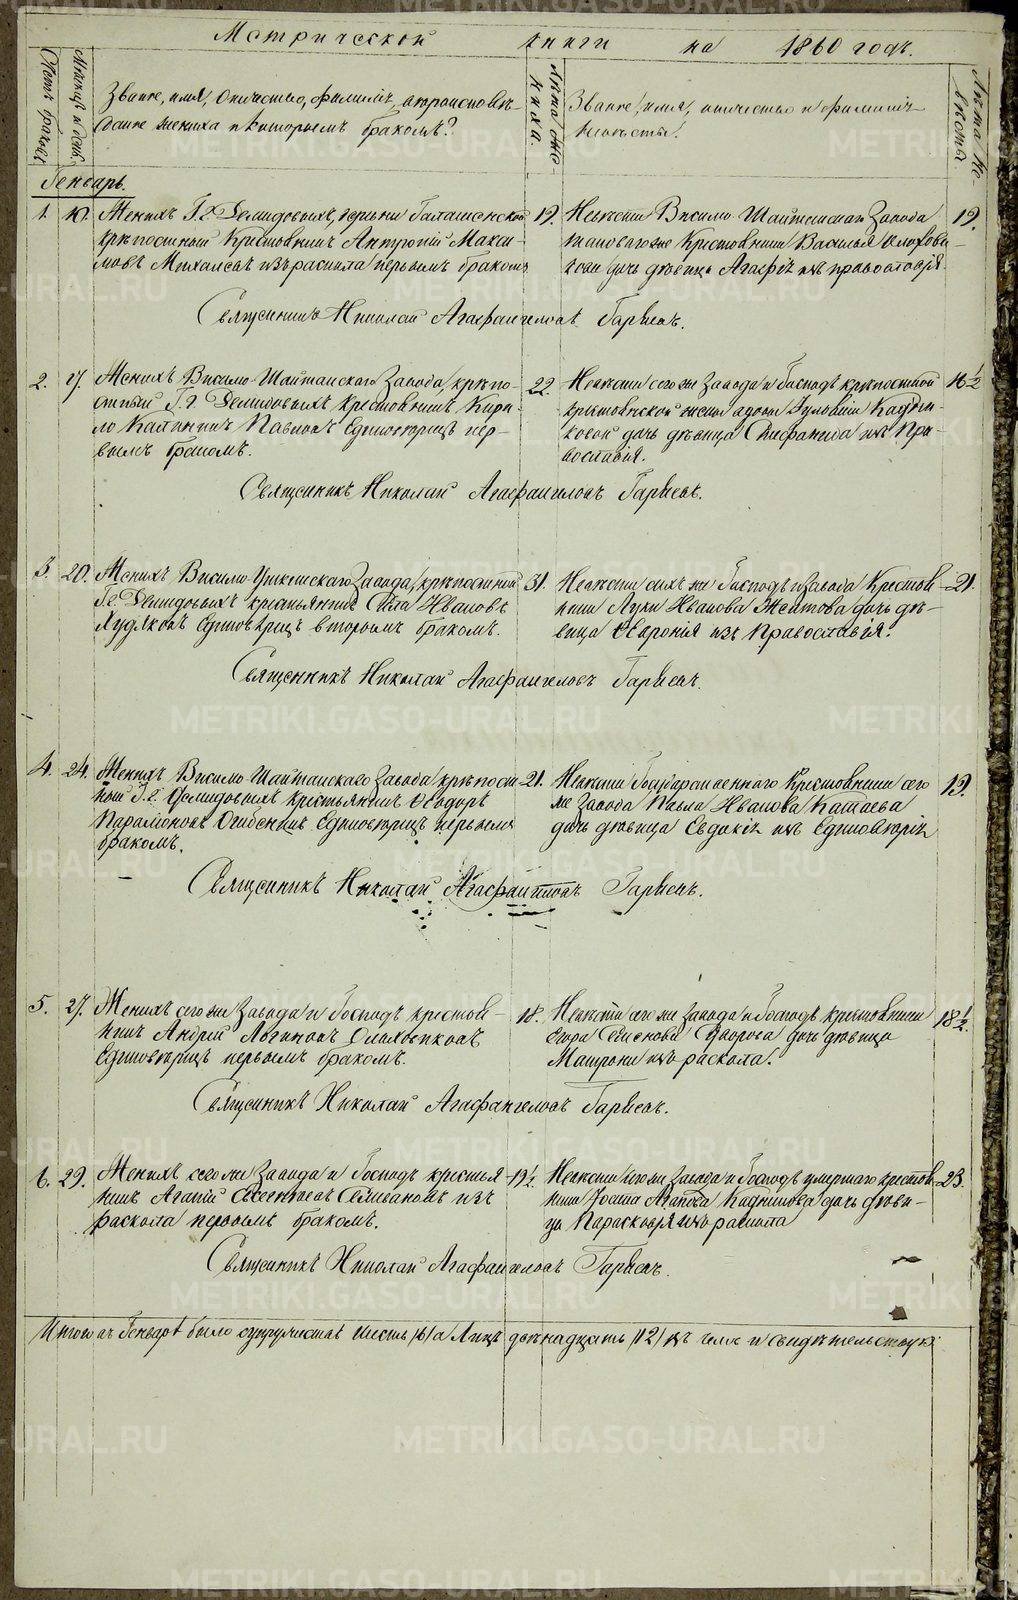 Метрической книги на 1860 годъ.
Счетъ браковъ
Мѣсяцъ и день.
Званіе, имя, отчество, фамилія, вѣроисповѣ-
даніе жениха и которымъ бракомъ?
Лѣта жениха.
Званіе, имя, отчество и фамилія
невѣсты.
Лѣта невѣсты
Генварь.
1. 10. Женихъ Г.г. Демидовыхъ, крѣпостный крестьянинъ Антроній Макси-
мовъ изъ раскола первымъ бракомъ
19.
Невѣста Висимо-Шайтанскаго Завода
тановагоже крестьянина Василья
дочь дѣвица Агафія изъ православія
19.
Священникъ Николай Агафангеловъ Гаряевъ.
2. 17. Женихъ Висимо-Шайтанскаго Завода крѣпо-
стный Г.г. Демидовыхъ крестьянинъ Кири-
ло Калининъ Павловъ Единовѣрецъ пер-
вымъ бракомъ.
22.
Невѣста сего же Завода и Господъ крѣпостной
крестьянской жены вдовы
дочь дѣвица Стефанида изъ Пра-
вославія.
16 ½
Священникъ Николай Агафангеловъ Гаряевъ.
3. 20. Женихъ Висимо-Уткинскаго Завода, крѣпостной
Гг. Демидовыхъ крестьянинъ Иванъ Ивановъ
Худяковъ Единовѣрецъ вторымъ бракомъ.
31.
Невѣста сихъ же Господъ и Завода Крестья
нина Луки Иванова Желтова дочь дѣ-
вица Февронія изъ Православія.
21.
Священникъ Николай Агафангеловъ Гаряевъ.
4. 24. Женихъ Висимо-Шайтанскаго Завода крѣпост
ный Г.г. Демидовыхъ крестьянинъ Ѳедоръ
Парамоновъ Огибенинъ Единовѣрецъ первымъ
бракомъ.
21.
Невѣста Государственнаго Крестьянина сего
же Завода Павла Иванова Катаева
дочь дѣвица Евдокія изъ Единовѣрія
19.
Священникъ Николай Агафангеловъ Гаряевъ.
5. 27. Женихъ сего же Завода и Господъ крестья-
нинъ Андрей Логиновъ
Единовѣрецъ первымъ бракомъ.
18.
Невѣста сего же завода и Господъ крестьянина
Егора дочь дѣвица
Матрона изъ раскола.
18 ½.
Священникъ Николай Агафангеловъ Гаряевъ.
6. 29. Женихъ сего же Завода и Господъ крестья
нинъ Агапій Савентьевъ Селивановъ изъ
раскола первымъ бракомъ.
19 ½
Невѣста сего же Завода и Господъ умершаго крестья
нина Агапова Кадникова дочь дѣви-
ца Парасковія изъ раскола
23.
Священникъ Николай Агафангеловъ Гаряевъ.
Итого въ Генварѣ было супружествъ шесть /6/ а Лицъ двѣнадцать /12/ въ чемъ и свидѣтельствую:
METRIKI.GASO-URAL.RU